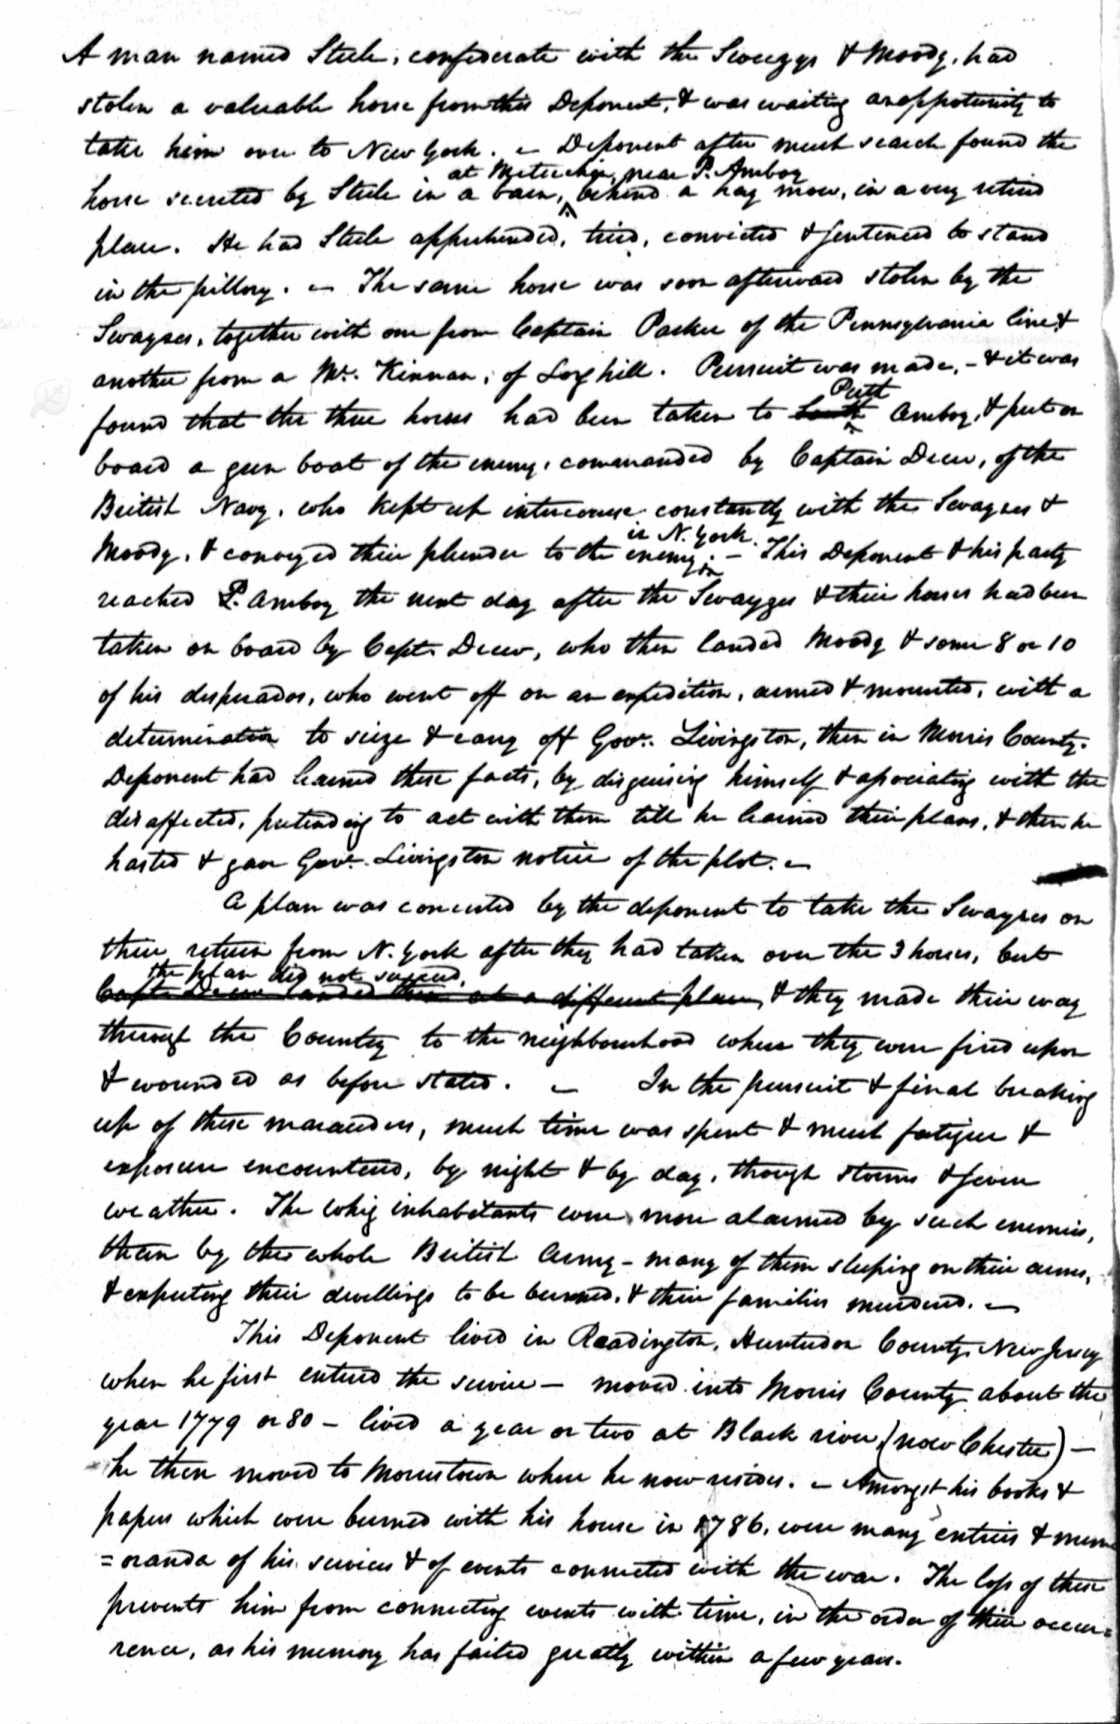 A man named Steele, confederate with the Sweezys & Moody, had
stolen a valuable horse from this Deponent, & was waiting an oppotunity to
take him over to New York. – Deponent after much search found the
at Metuchin, near P. Amboy
horse secreted by Steele in a barn, ^ behind a hay mow, in a very retired
place. He had Steele apprehended, tried, convicted & sentenced to stand
in the pillory. – The same horse was soon afterward stolen by the
Swayzes, together with one from Captain Parker of the Pennsylvania line &
another from a Mr. Kinnan, of Loghill. Pursuit was made, – & it was
Perth
found that the three horses had been taken to South ^ Amboy, & put on
board a gun boat of the enemy, commanded by Captain Drew, of the
British Navy, who kept up intercourse constantly with the Swayzes &
in N. York.
Moody, & conveyed their plunder to the enemy. ^ – This Deponent & his party
reached P. Amboy the next day after the Swayzes & their horses had been
taken on board by Capt. Drew, who then landed Moody & some 8 or 10
of his desperados, who went off on an expedition, armed & mounted, with a
determination to seize & carry off Gov. Livingston, then in Morris County.
Deponent had learned these facts, by disguising himself & associating with the
disaffected, pretending to act with them till he learned their plans, & then he
hasted & gave Gov. Livingston notice of the plot. –
A plan was concerted by the deponent to take the Swayzes on
their return from N. York after they had taken over the 3 horses, but
the plan did not succeed,
Capt. Drew landed them at a different place, & they made their way
through the Country to the neighbourhood where they were fired upon
& wounded as before stated. – In the pursuit & final breaking
up of these marauders, much time was spent & much fatigue &
exposure encountered, by night & by day, through storms & severe
weather. The whig inhabitants were more alarmed by such enemies,
than by the whole British Army – many of them sleeping on their arms,
& expecting their dwellings to be burned, & their families murdered. –
This Deponent lived in Readington, Hunterdon County, New Jersey
when he first entered the service – moved into Morris County about the
year 1779 or 80 – lived a year or two at Black river (now Chester) –
he then moved to Morristown where he now resides. – Amongst his books &
papers which were burned with his house in 1786, were many entries & mem
=oranda of his services & of events connected with the war. The loss of these
prevents him from connecting events with time, in the order of their occur=
rence, as his memory has failed greatly within a few years.